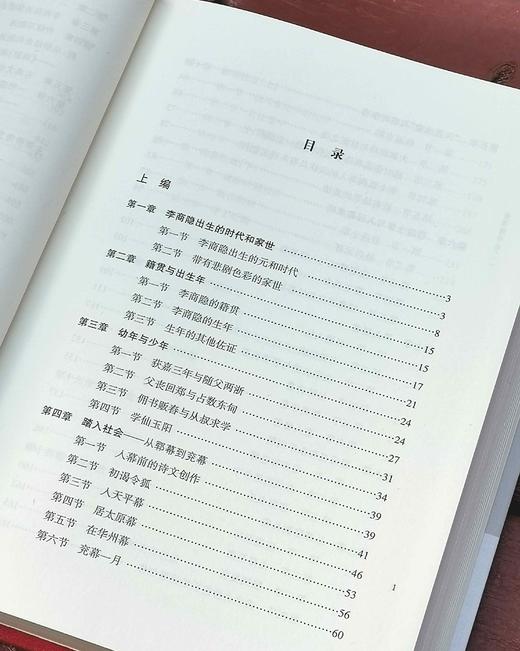 目 录
上 编
第一章 李商隐出生的时代和家世 3
第一节 李商隐出生的元和时代 3
第二节 带有悲剧色彩的家世 8
第二章 籍贯与出生年 15
第一节 李商隐的籍贯 15
第二节 李商隐的生年 17
第三节 生年的其他佐证 21
第三章 幼年与少年 24
第一节 获嘉三年与随父两浙 24
第二节 父丧回郑与占数东甸 27
第三节 佣书贩舂与从叔求学 31
第四节 学仙玉阳 34
第四章 踏入社会——从郓幕到兖幕 39
第一节 入幕前的诗文创作 39
第二节 初谒令狐 41
第三节 入天平幕 46
第四节 居太原幕 53
第五节 在华州幕 56
第六节 兖幕一月 60
1